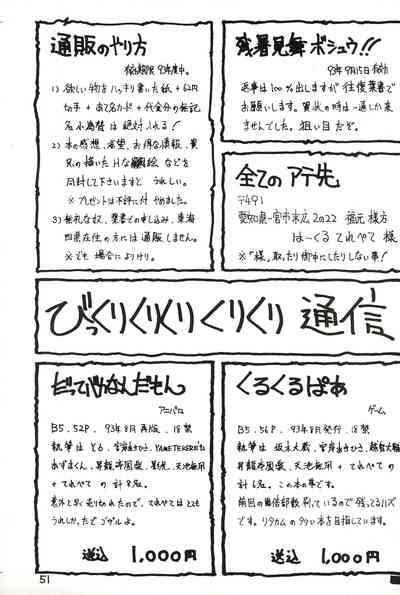 通販のやり方
有効期限 93年度中。
1) 欲しい物をハッキリ書いた紙 + 62円
切手 + あて名カード + 代金分の無記
名小為替は絶対入れる!
2) 本の感想、希望、お得な情報、貴
兄の描いたHな絵などを
同封して下さいますと うれしい。
※プレゼントは不評に付 やめました。
3) 無礼な奴、葉書での申し込み、東海
四県在住の方には通販しません。
※でも 場合によりけり。
残暑見舞ボシュウ!!
93年9月15日有効
返事は100%出しますが往復葉書で
お願いします。賀状の時は一通しか来
ませんでした。狙い目だぞ。
全てのアテ先
〒491
愛知県一宮市末広2の22 福元 様方
はーくる てれぺて 様
※「様」取ったり御中にしたりしない事!
びっくりくりくりくりくり通信
だってやなんだもん
アニパロ
B5.52P.93年8月再版.18禁
執筆は とる、宮岸あきひさ、
あずまくん、昇龍帝国
+てれぺて の 計8名。
意外と早く売り切れたので、てれぺてはとても
うれしかったでゴザルよ。
送込 1,000円
くるくるぱあ
ゲーム
B5.56P.93年8月発行.18禁
執筆は 坂本大蔵、宮岸あきひさ、
昇龍帝国 + てれぺての
計6名。この本の事です。
前回の倍部数刷っているので残ってるハズ
です。リタカムの多い本を目指しています。
送込 1,000円
51